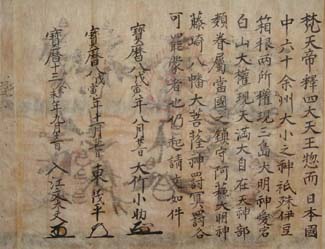 梵天帝釋四大天王惣而日本國
中六十余州大小之神祇殊伊豆
箱根両所権現三嶋大明神愛宕
白山大権現天満大自在天神部
類眷属當國之鎮守阿蘇大明神
藤崎八幡大菩薩神罰冥罰各
可罷蒙者也仍起請文如件
寶暦八戊寅年八月廿日 大竹小助
寶暦八戊寅年十二月 東 茂平
寶暦十三年九月 入江